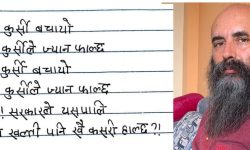 कुर्सी बचायो
कुर्सीले ज्यान फाल्छ
कुर्सी बचायो
कुर्सीले ज्यान फाल्छ
! सरकारले यसपालि
खल्ती पनि खै कसरी हाल्छ ?!